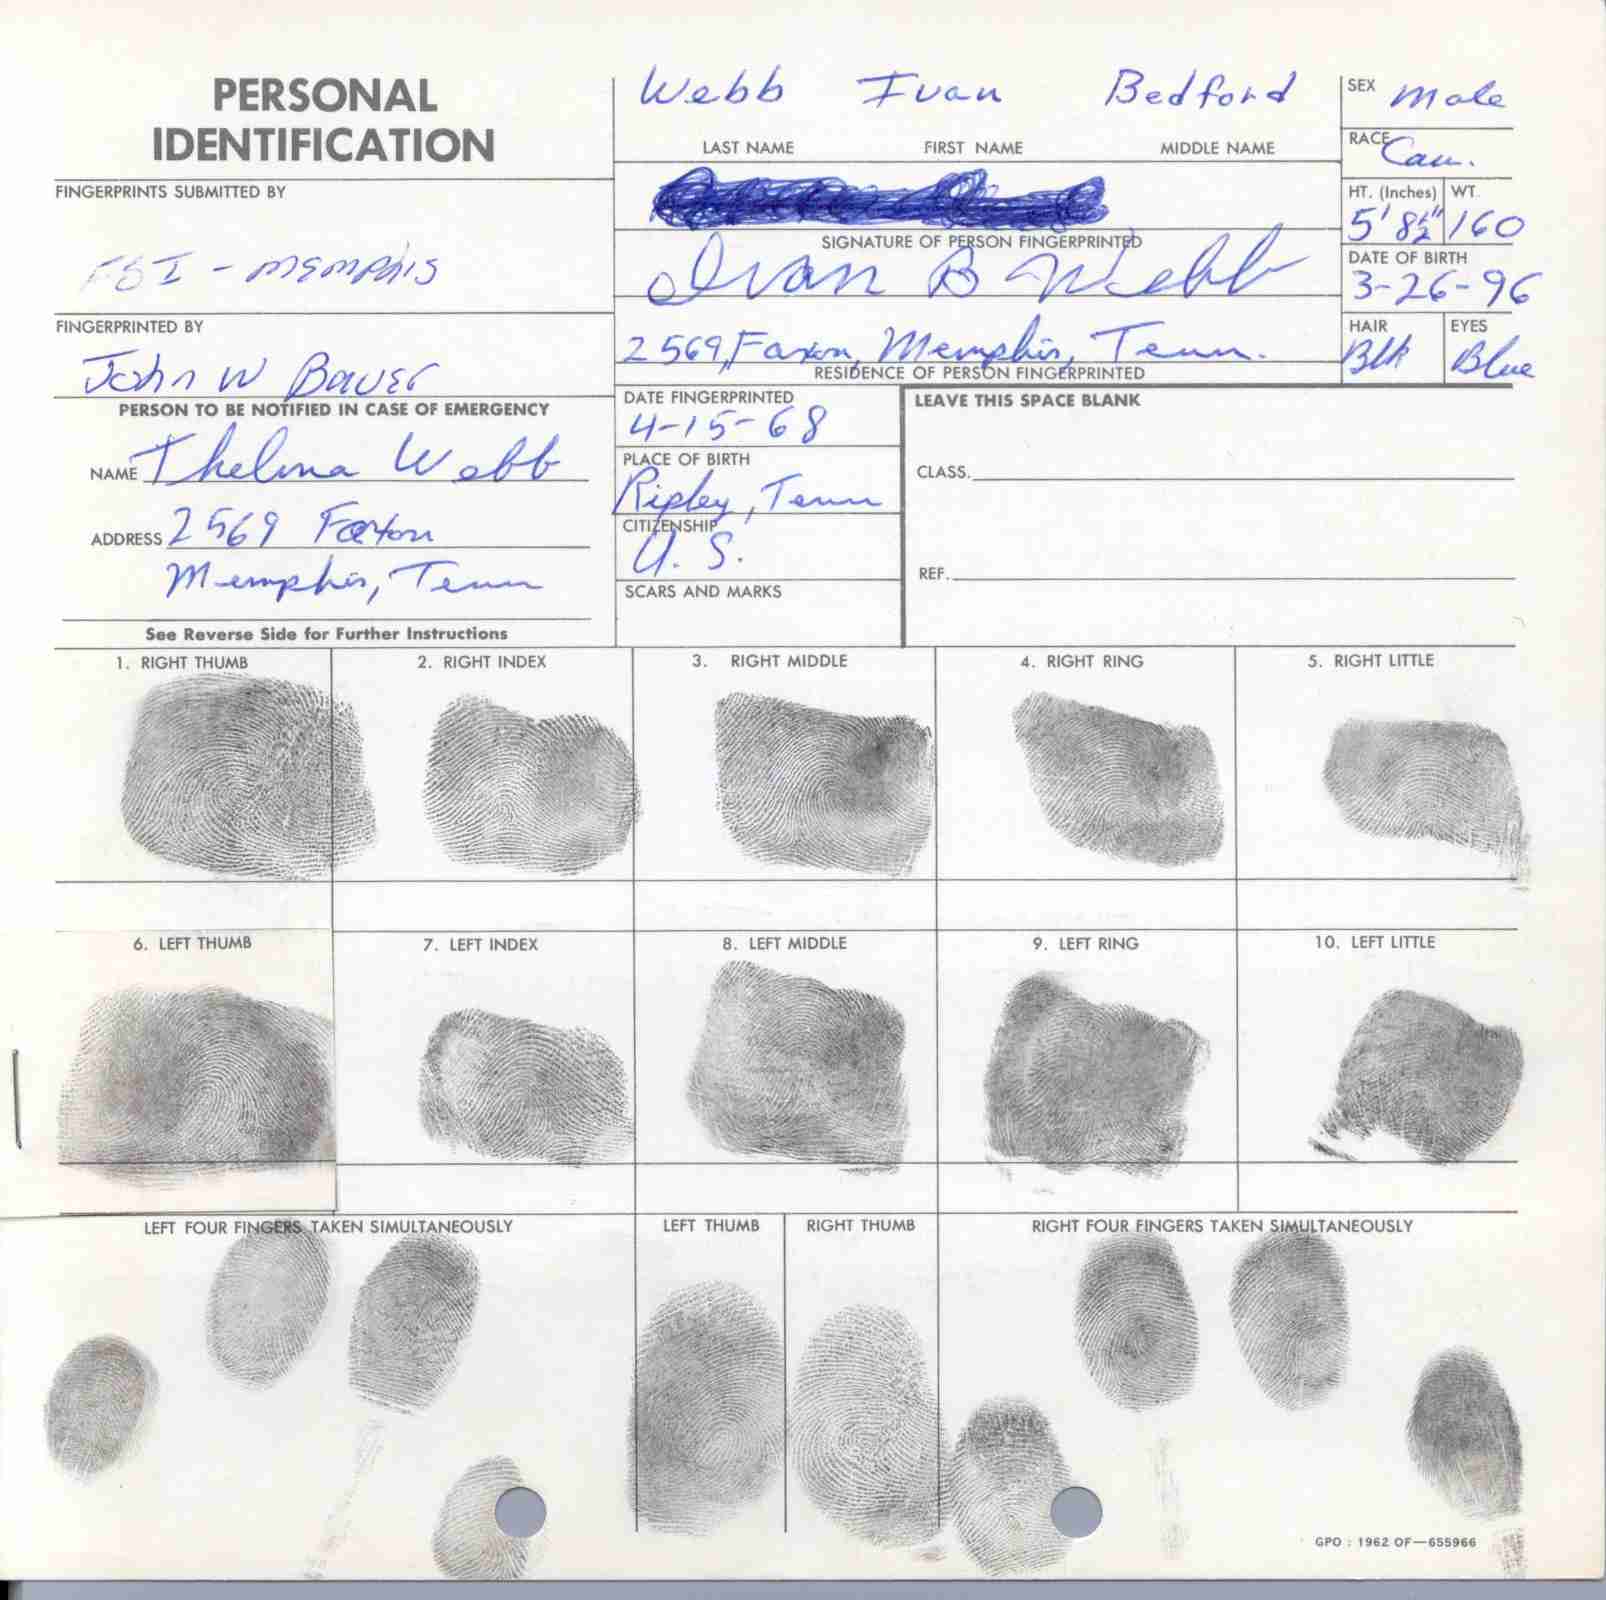 PERSONAL
IDENTIFICATION
Webb Ivan Bedford
LAST NAME FIRST NAME MIDDLE NAME
SEX Male
RACE Cau.
HT. (Inches) WT.
5' 8½" 160
DATE OF BIRTH
3-26-96
HAIR EYES
Blk Blue
FINGERPRINTS SUBMITTED BY
FBI - MEMPHIS
SIGNATURE OF PERSON FINGERPRINTED
Ivan B Webb
2569, Faxon, Memphis, Tenn.
RESIDENCE OF PERSON FINGERPRINTED
FINGERPRINTED BY
John W Bauer
PERSON TO BE NOTIFIED IN CASE OF EMERGENCY
NAME Thelma Webb
ADDRESS 2569 Faxton
Memphis, Tenn
See Reverse Side for Further Instructions
DATE FINGERPRINTED
4-15-68
PLACE OF BIRTH
Ripley, Tenn
CITIZENSHIP
U. S.
SCARS AND MARKS
LEAVE THIS SPACE BLANK
CLASS.
REF.
1. RIGHT THUMB 2. RIGHT INDEX 3. RIGHT MIDDLE 4. RIGHT RING 5. RIGHT LITTLE
6. LEFT THUMB 7. LEFT INDEX 8. LEFT MIDDLE 9. LEFT RING 10. LEFT LITTLE
LEFT FOUR FINGERS TAKEN SIMULTANEOUSLY LEFT THUMB RIGHT THUMB RIGHT FOUR FINGERS TAKEN SIMULTANEOUSLY
GPO : 1962 OF—655966